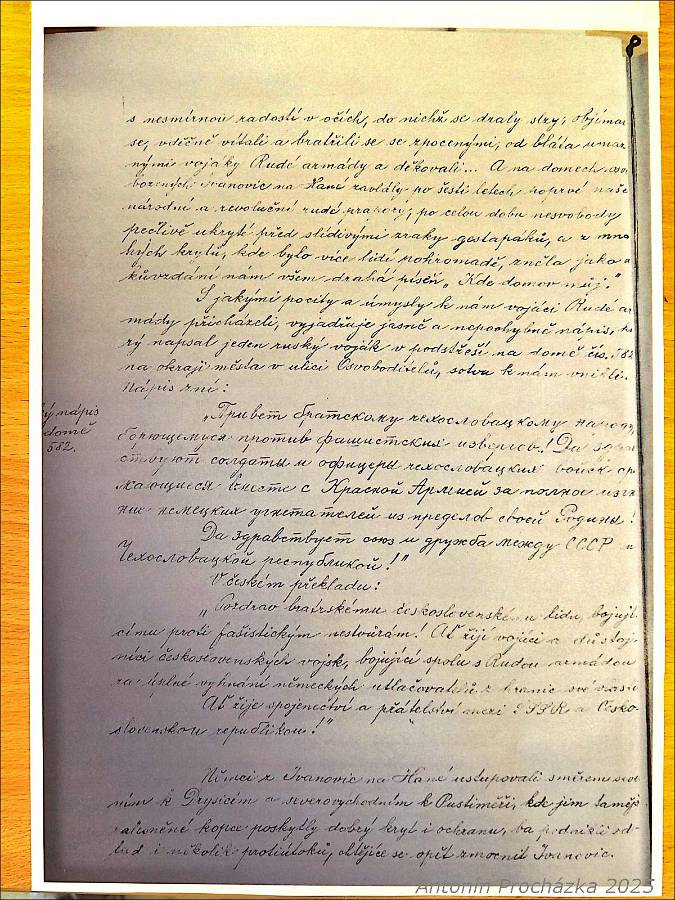 8
s nesmírnou radostí v očích, do nichž se draly slzy, objíma
se, vděčně vítali a bratřili se se zpocenými, od bláta umaz
nými vojáky Rudé armády a děkovali... A na domech osvo
bozených Ivanovic na Hané zavlály po šesti letech poprvé naše
národní a revoluční rudé prapory, po celou dobu nesvobody
pečlivě ukryté před slídivými zraky gestapáků, a z mno
hých krytů, kde bylo více lidí pohromadě, zněla jako
kůvzdání nám všem drahá píseň „Kde domov můj."
S jakými pocity a úmysly k nám vojáci Rudé ar
mády přicházeli, vyjadřuje jasně a nepochybně nápis, kte
rý napsal jeden ruský voják v podstřeší na domě čís. 582
na okraji města v ulici Osvoboditelů, sotva k nám vnikli.
Nápis zní:
ý nápis
domě
582.
„Привет братскому чехословацкому народу,
борющемуся против фашистских извергов! Да здрав
ствуют солдаты и офицеры чехословацких войск сра
жающиеся вместе с Красной Армией за полное изгна
ние немецких угнетателей из пределов своей Родины!
Да здравствует союз и дружба между СССР и
Чехословацкой республикой!"
V českém překladu:
„Pozdrav bratrskému československému lidu, bojují
címu proti fašistickým nestvůrám! Ať žijí vojáci a důstoj
níci československých vojsk, bojující spolu s Rudou armádou
za úplné vyhnání německých utlačovatelů z hranic své vlasti
Ať žije spojenectví a přátelství mezi SSSR a Česko
slovenskou republikou!"
Němci z Ivanovic na Hané ustupovali směrem seve
ním k Drysicím a severovychodním k Pustiměři, kde jim tamějš
zalesněné kopce poskytly dobrý kryt i ochranu, ba podnikli od
tud i několik protiútoků, chtějíce se opět zmocnit Ivanovic.
Antonín Procházka 2025